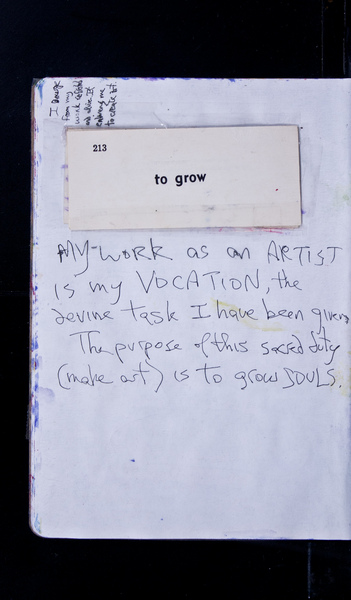 I
from my
work
and
to
213
to grow
MY WORK as an ARTIST
is my VOCATION, the
devine task I have been given
The purpose of this sacred duty
(make art) is to grow SOULS.